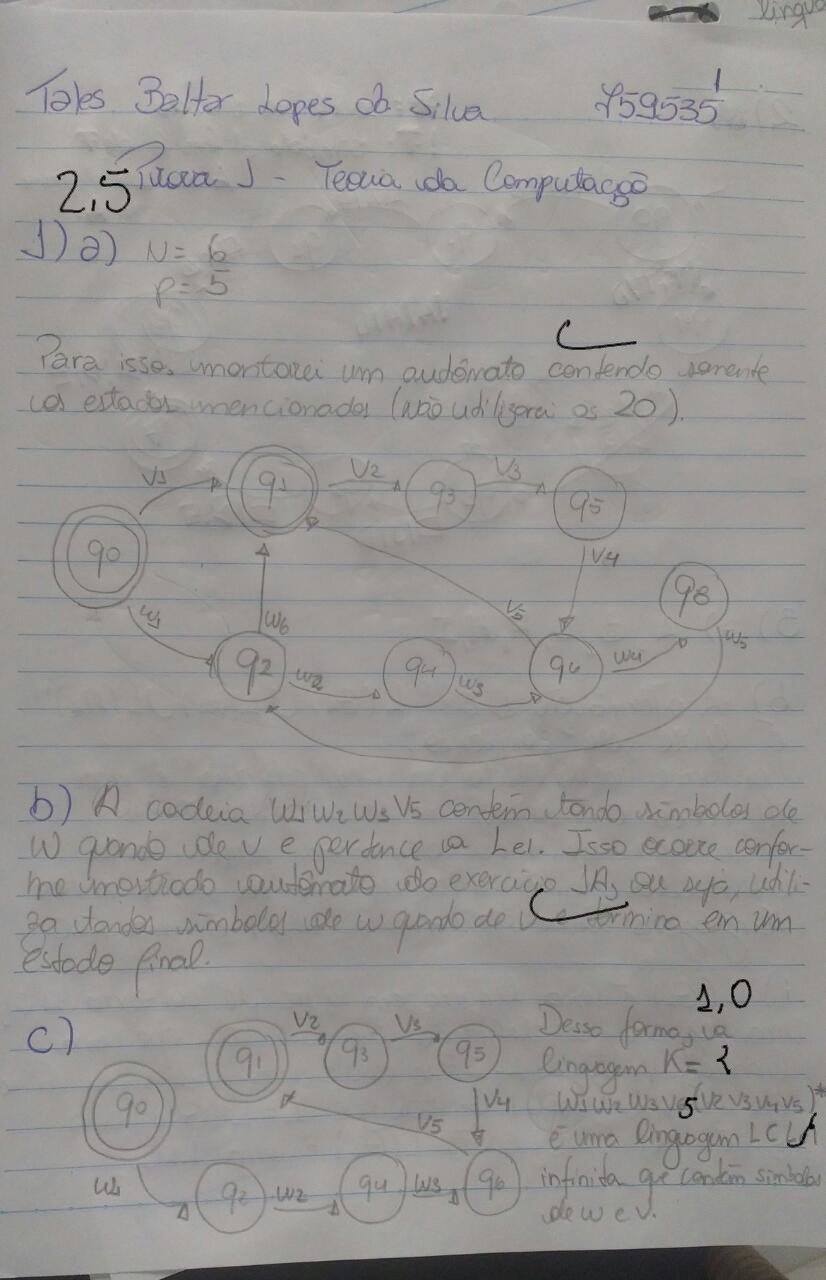 língua
Tales Baltar Lopes da Silva 759535
1
2,5 Prova 1 - Teoria da Computação
1) a) N = 6
p = 5
Para isso, montarei um autômato contendo somente
os estados mencionados (não utilizarei os 20).
V1 q1 V2 q3 V3 q5
q0 V4 q8
W1 W6 V5 W5
q2 W2 q4 W3 q6 W4
b) A cadeia W1 W2 W3 V5 contém tando símbolos de
W quando de V e pertence a Le1. Isso ocorre confor-
me mostrado autômato do exercício 1A, ou seja, utili-
za tandos símbolos de w quando de v e termina em um
estado final.
1,0
c) q1 V2 q3 V3 q5 Dessa forma, a
linguagem K = {
q0 V4 W1 W2 W3 V5 (V2 V3 V4 V5)*
V5 é uma linguagem LC LA
W1 q2 W2 q4 W3 q6 infinita qe contém símbolos
de w e v.